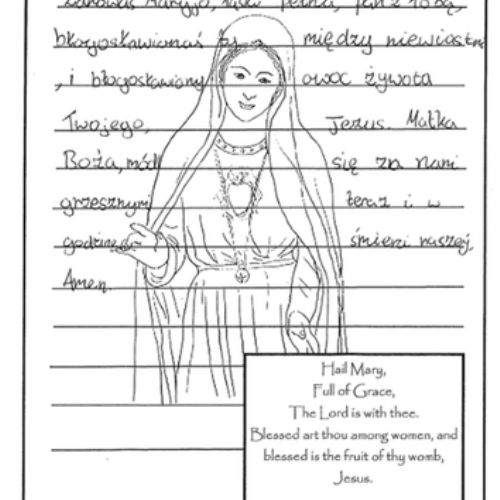 Zdrowaś Maryjo, łaski pełna, Pan z Tobą,
błogosławionaś ty między niewiastami
, i błogosławiony owoc żywota
Twojego, Jezus. Matka
Boża, módl się za nami
grzesznymi teraz i w
godzinę śmierci naszej.
Amen.
Hail Mary,
Full of Grace,
The Lord is with thee.
Blessed art thou among women, and
blessed is the fruit of thy womb,
Jesus.